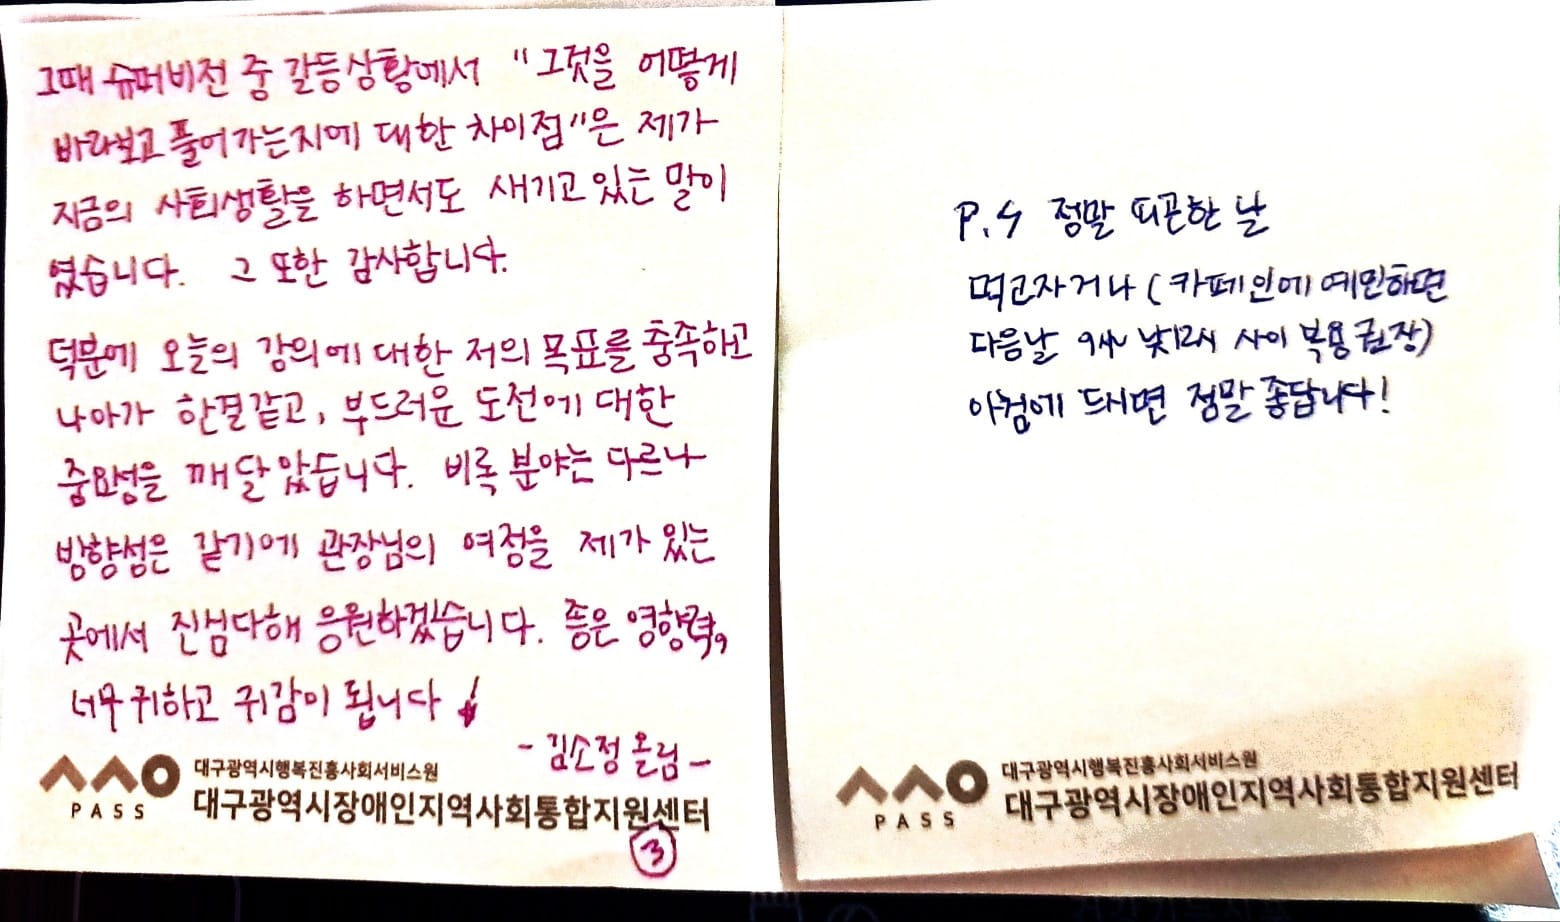 그때 슈퍼비전 중 갈등상황에서 "그것을 어떻게
바라보고 풀어가는지에 대한 차이점"은 제가
지금의 사회생활을 하면서도 새기고 있는 말이
였습니다. 그 또한 감사합니다.
덕분에 오늘의 강의에 대한 저의 목표를 충족하고
나아가 한결같고, 부드러운 도전에 대한
중요성을 깨달았습니다. 비록 분야는 다르나
방향성은 같기에 관장님의 여정을 제가 있는
곳에서 진심다해 응원하겠습니다. 좋은 영향력,
너무 귀하고 귀감이 됩니다
- 김소정 올림 -
대구광역시행복진흥사회서비스원
대구광역시장애인지역사회통합지원센터
PASS
3
P.S 정말 피곤한 날
먹고자거나 (카페인에 예민하면
다음날 9시~낮12시 사이 복용 권장)
아침에 드시면 정말 좋답니다!
대구광역시행복진흥사회서비스원
대구광역시장애인지역사회통합지원센터
PASS